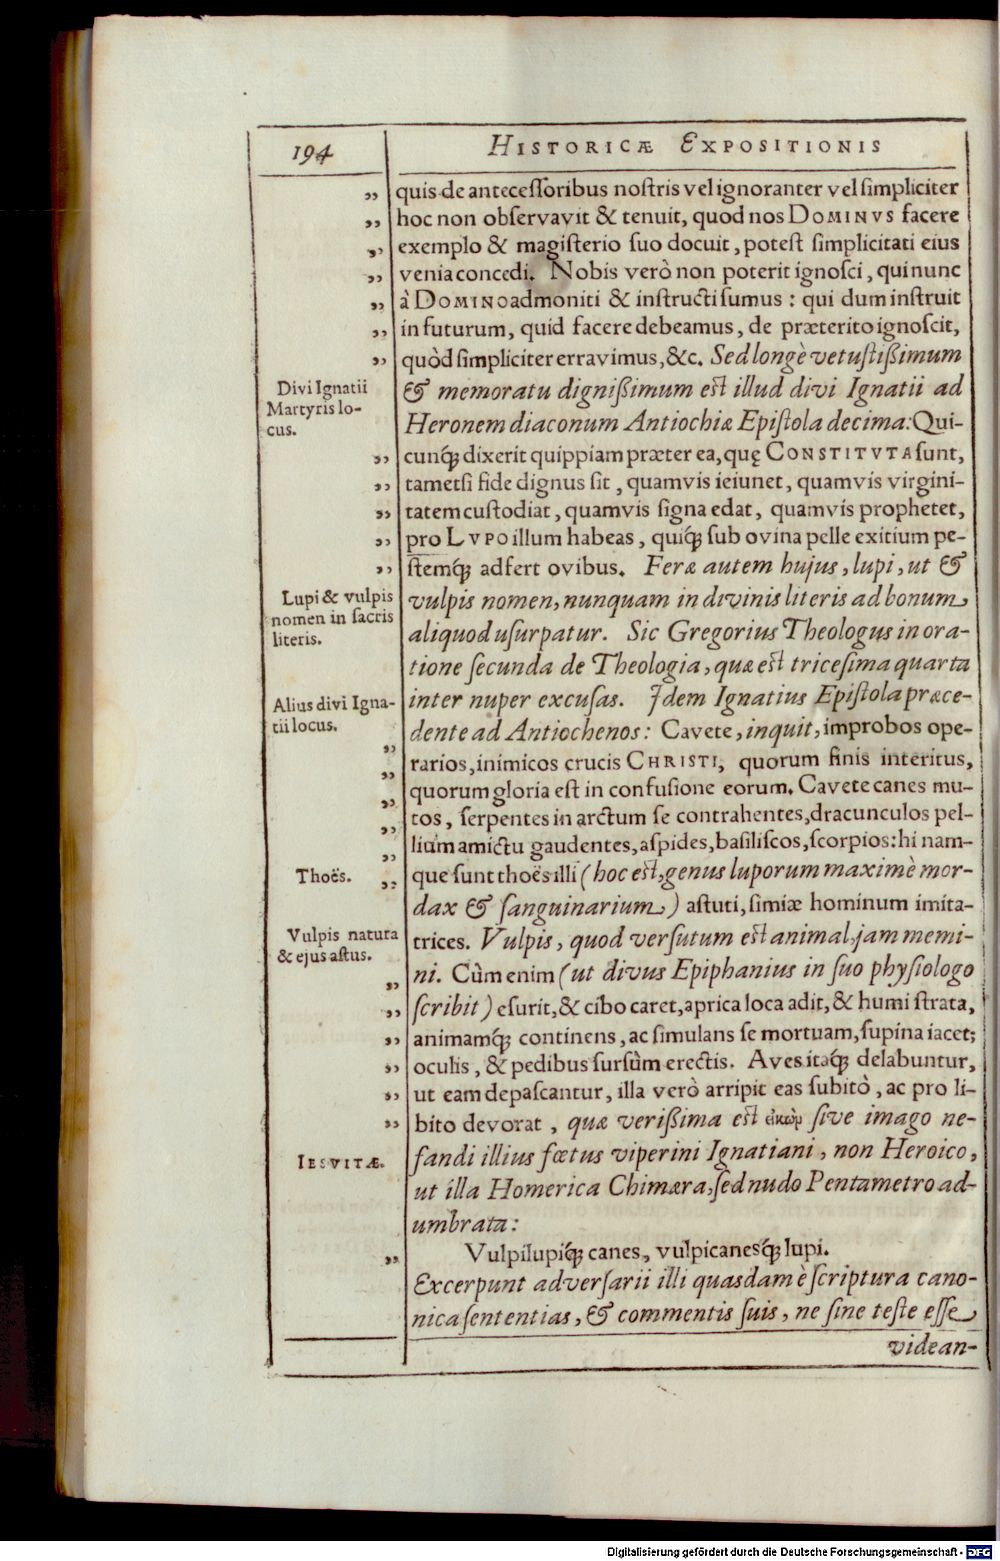 194
HISTORICÆ EXPOSITIONIS
„ quis de antecessoribus nostris vel ignoranter vel simpliciter
„ hoc non observavit & tenuit, quod nos DOMINVS facere
„ exemplo & magisterio suo docuit, potest simplicitati eius
„ venia concedi. Nobis verò non poterit ignosci, qui nunc
„ à DOMINO admoniti & instructi sumus : qui dum instruit
„ in futurum, quid facere debeamus, de præterito ignoscit,
„ quòd simpliciter erravimus, &c. Sed longè vetustißimum
Divi Ignatii
Martyris lo-
cus.
& memoratu dignißimum est illud divi Ignatii ad
Heronem diaconum Antiochiæ Epistola decima: Qui-
„ cunq́; dixerit quippiam præter ea, quę CONSTITVTA sunt,
„ tametsi fide dignus sit, quamvis ieiunet, quamvis virgini-
„ tatem custodiat, quamvis signa edat, quamvis prophetet,
„ pro LVPO illum habeas, quiq́; sub ovina pelle exitium pe-
„ stemq́; adfert ovibus. Feræ autem hujus, lupi, ut &
Lupi & vulpis
nomen in sacris
literis.
vulpis nomen, nunquam in divinis literis ad bonum
aliquod usurpatur. Sic Gregorius Theologus in ora-
tione secunda de Theologia, quæ est tricesima quarta
Alius divi Igna-
tii locus.
inter nuper excusas. Idem Ignatius Epistola præce-
dente ad Antiochenos: Cavete, inquit, improbos ope-
„ rarios, inimicos crucis CHRISTI, quorum finis interitus,
„ quorum gloria est in confusione eorum. Cavete canes mu-
„ tos, serpentes in arctum se contrahentes, dracunculos pel-
„ lium amictu gaudentes, aspides, basiliscos, scorpios: hi nam-
Thoës.
„ que sunt thoës illi (hoc est, genus luporum maximè mor-
„ dax & sanguinarium) astuti, simiæ hominum imita-
Vulpis natura
& ejus astus.
trices. Vulpis, quod versutum est animal, jam memi-
„ ni. Cùm enim (ut divus Epiphanius in suo physiologo
„ scribit) esurit, & cibo caret, aprica loca adit, & humi strata,
„ animamq́; continens, ac simulans se mortuam, supina iacet;
„ oculis, & pedibus sursùm erectis. Aves itaq́; delabuntur,
„ ut eam depascantur, illa verò arripit eas subitò, ac pro li-
„ bito devorat, quæ verißima est εἰκὼν sive imago ne-
IESVITÆ.
fandi illius fœtus viperini Ignatiani, non Heroico,
ut illa Homerica Chimæra, sed nudo Pentametro ad-
umbrata:
„ Vulpilupiq́; canes, vulpicanesq́; lupi.
Excerpunt adversarii illi quasdam è scriptura cano-
nica sententias, & commentis suis, ne sine teste esse
videan-
Digitalisierung gefördert durch die Deutsche Forschungsgemeinschaft - DFG